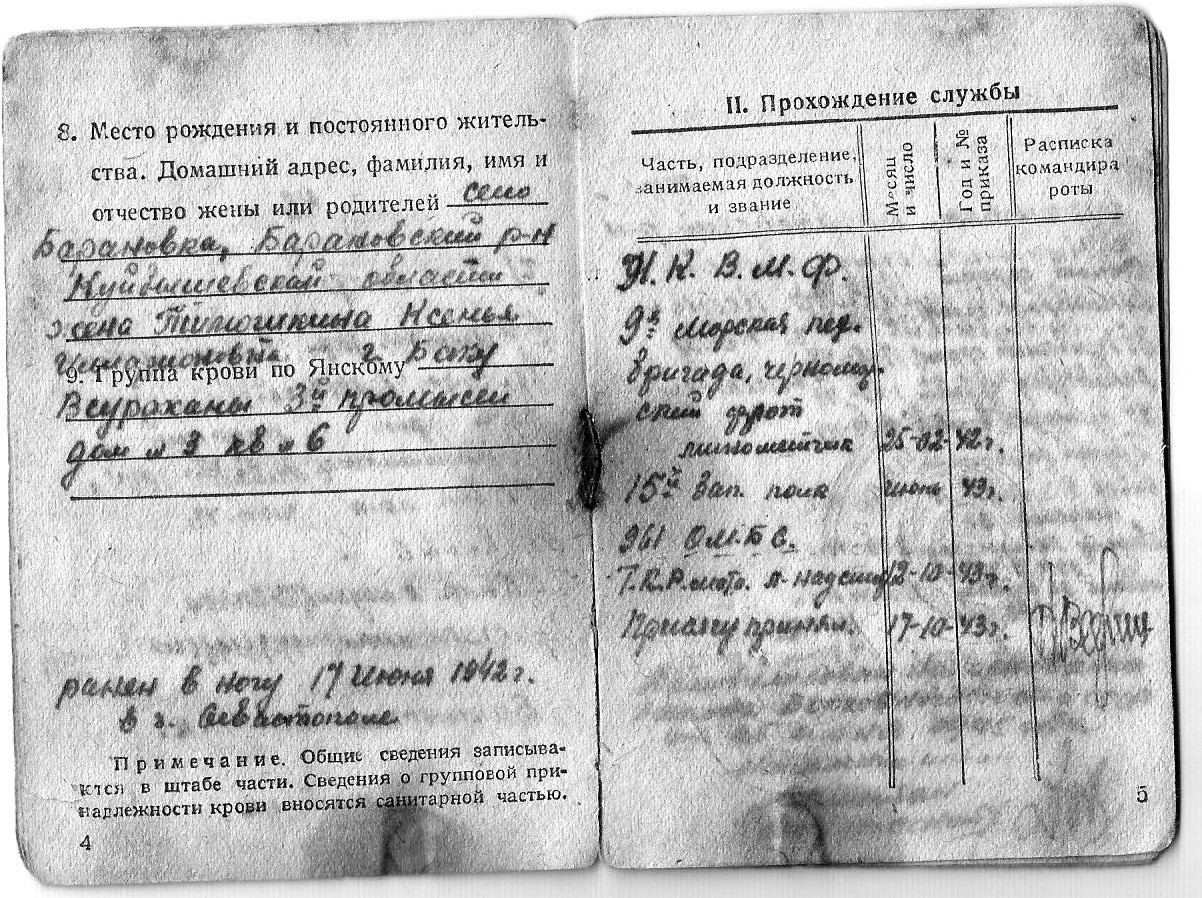 8. Место рождения и постоянного житель-
ства. Домашний адрес, фамилия, имя и
отчество жены или родителей село
Барановка, Барановский р-н
Куйбышевской области
жена Тимошкина Ксенья
9. Группа крови по Янскому г. Баку
3й
дом № 3 кв № 6
ранен в ногу 17 Июня 1942 г.
в г. Севастополе
Примечание. Общие сведения записыва-
ются в штабе части. Сведения о групповой при-
надлежности крови вносятся санитарной частью.
4
II. Прохождение службы
Часть, подразделение, занимаемая должность и звание
Месяц и число
Год и № приказа
Расписка командира роты
Н. К. В. М. Ф.
9я Морская пех.
бригада, черномор-
ский флот
минометчик 25-02-42 г.
15й Зап. полк июнь 43 г.
961 О.М.Б С.
Т.К.Р. 12-10-43 г.
Присягу принял. 17-10-43 г.
5